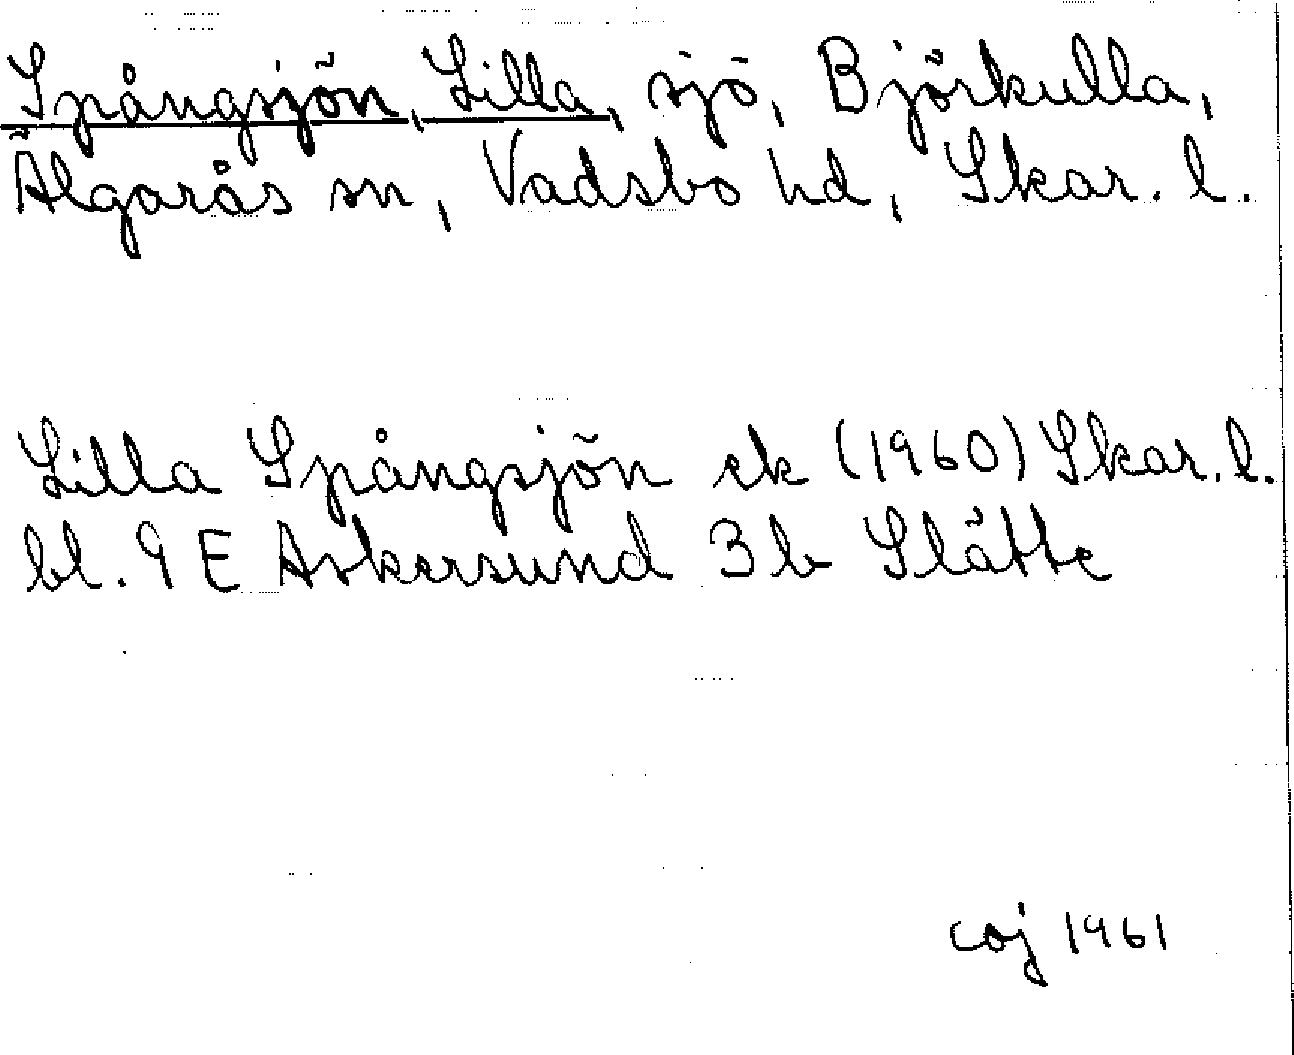 Spångsjön, Lilla, sjö, Björkulla,
Älgarås sn, Vadsbo hd, Skar. l.
Lilla Spångsjön ek (1960) Skar. l.
bl. 9 E Askersund 3 b Slätte
coj 1961